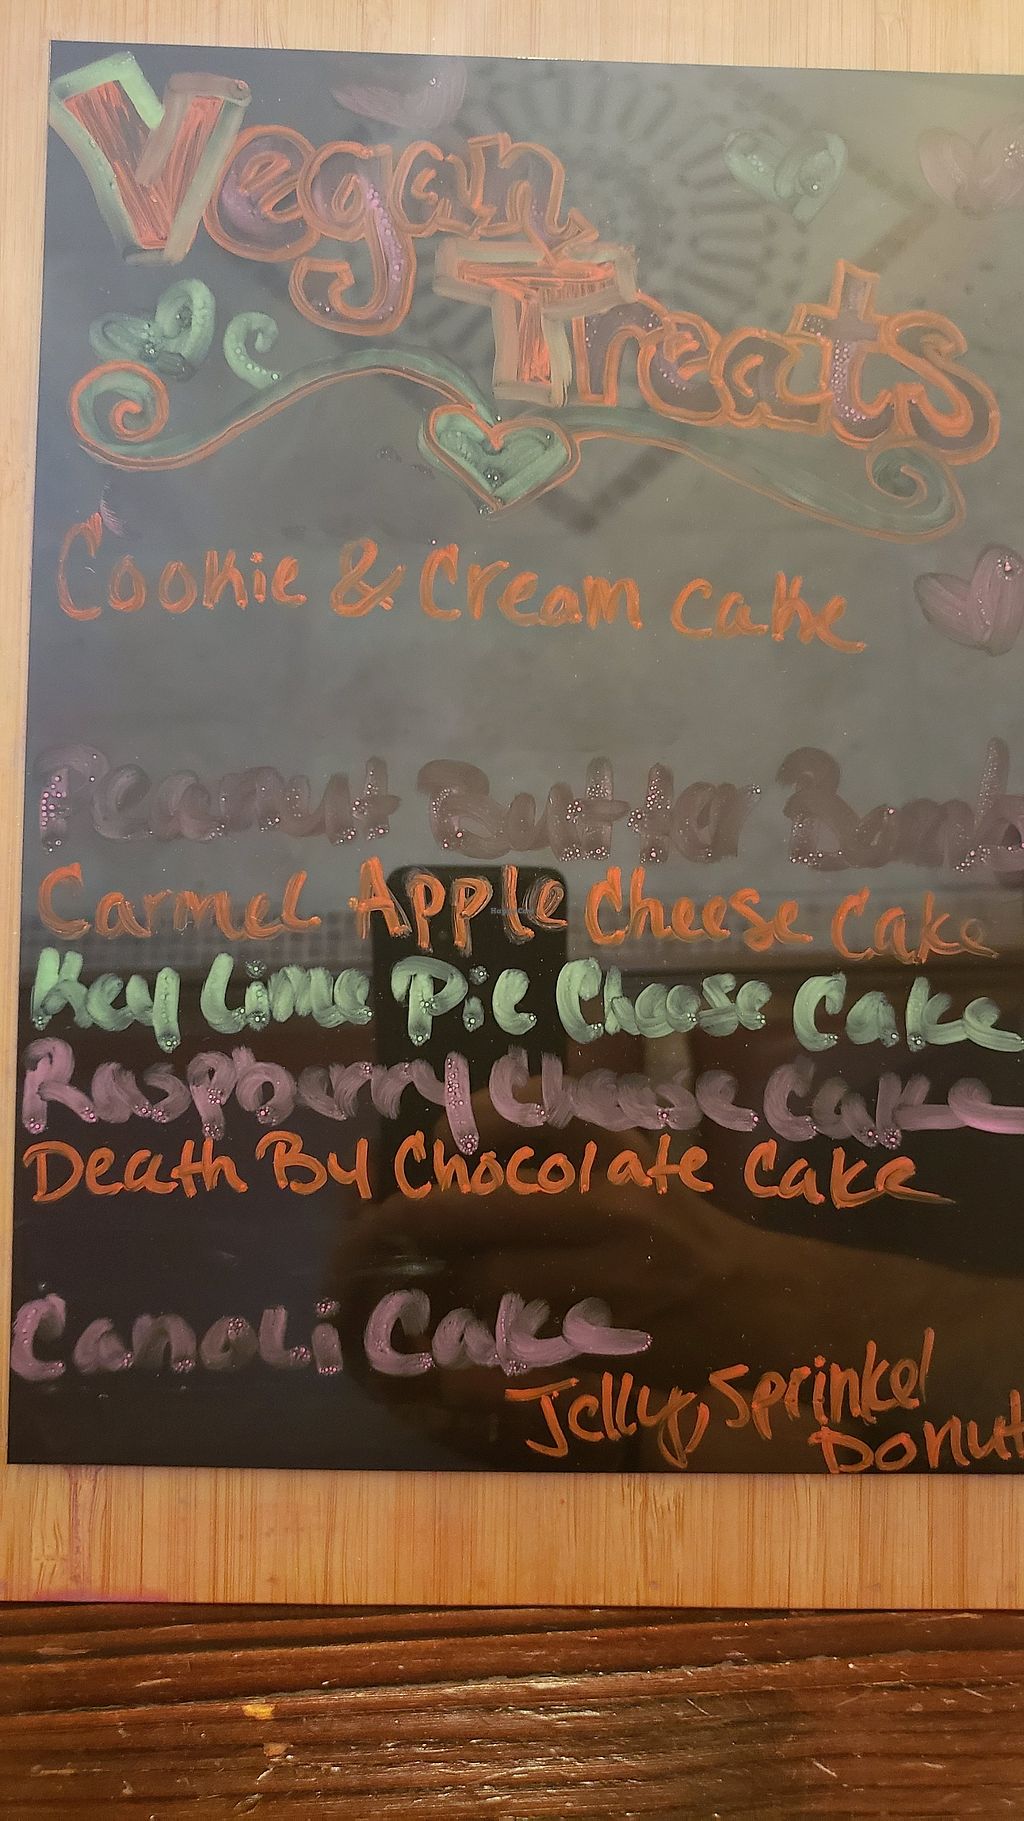 Vegan
Treats
Cookie & Cream Cake
Peanut Butter Bomb
Carmel Apple Cheese Cake
Key Lime Pie Cheese Cake
Raspberry Cheese Cake
Death By Chocolate Cake
Canoli Cake
Jelly, Sprinkel
Donut